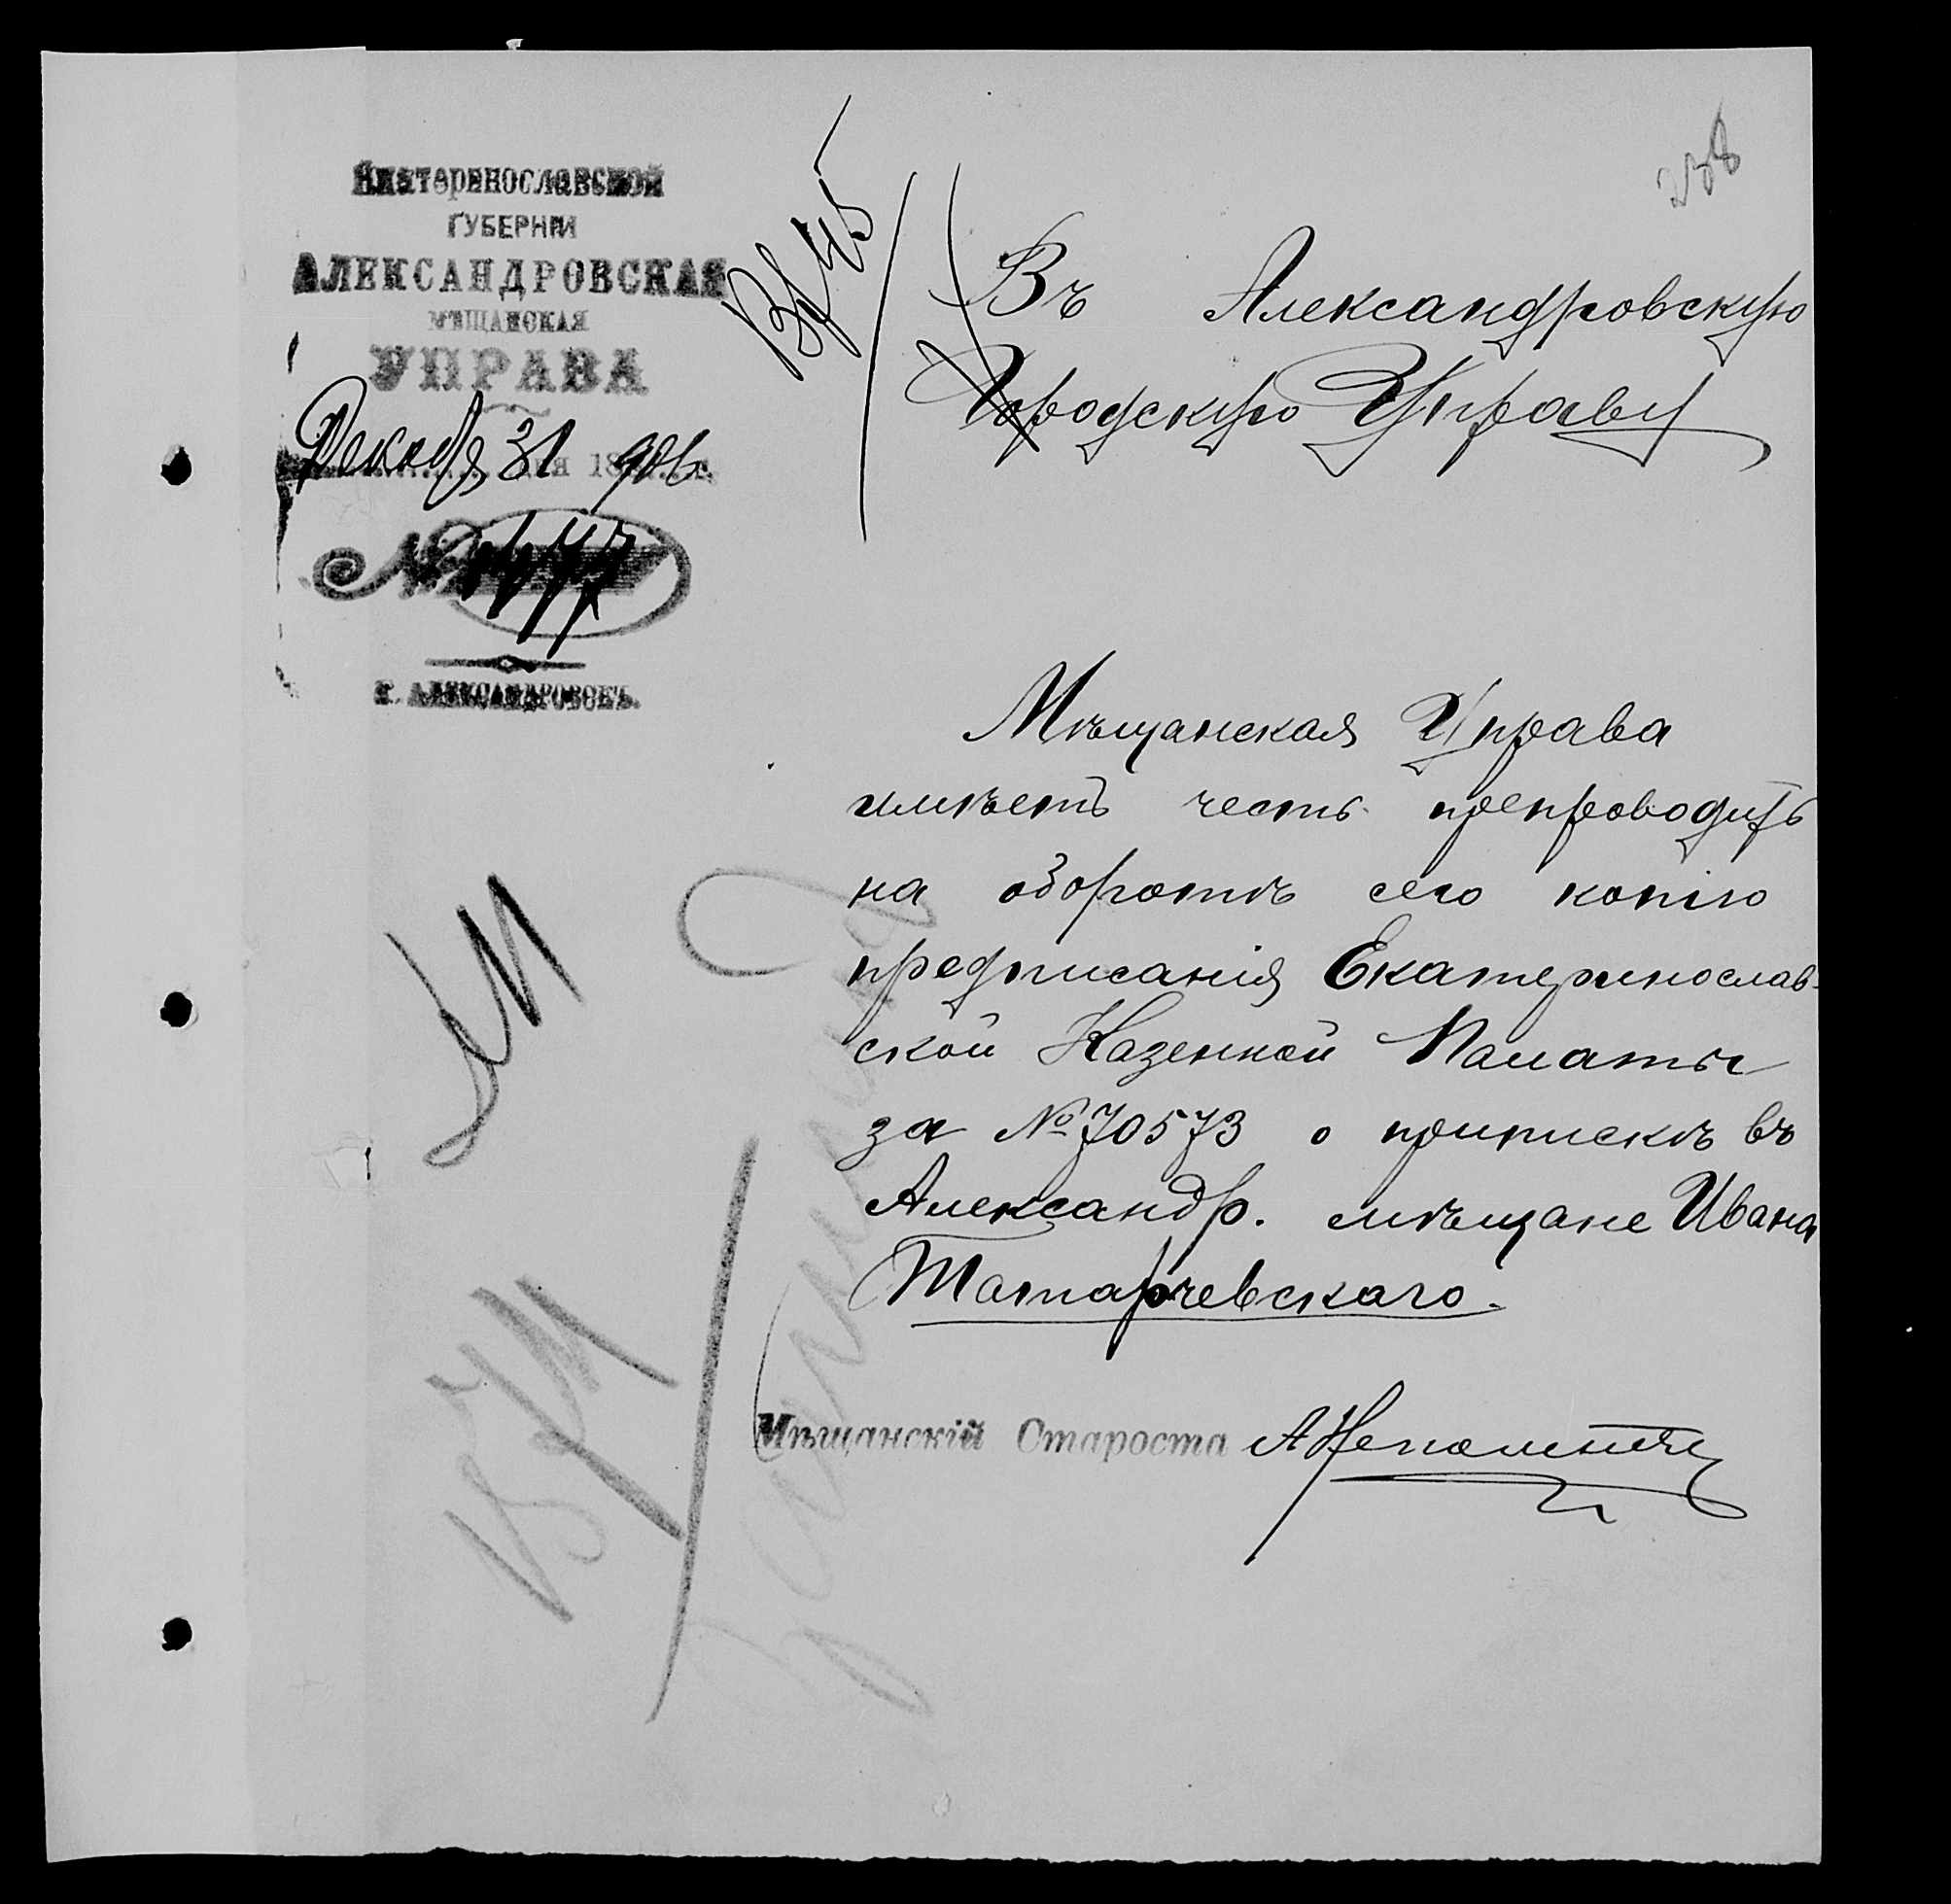 238
Екатеринославской
ГУБЕРНІИ
АЛЕКСАНДРОВСКАЯ
МѢЩАНСКАЯ
УПРАВА
Декабря 31 дня 1906 г.
№
Г. АЛЕКСАНДРОВСКЪ.
Въ Александровскую
Городскую Управу
Мѣщанская Управа
имѣетъ честь препроводить
на оборотѣ сего копію
предписанія Екатеринослав-
ской Казенной Палаты
за № 70573 о припискѣ въ
Александр. мѣщане Ивана
Татарчевскаго.
Мѣщанскій Староста